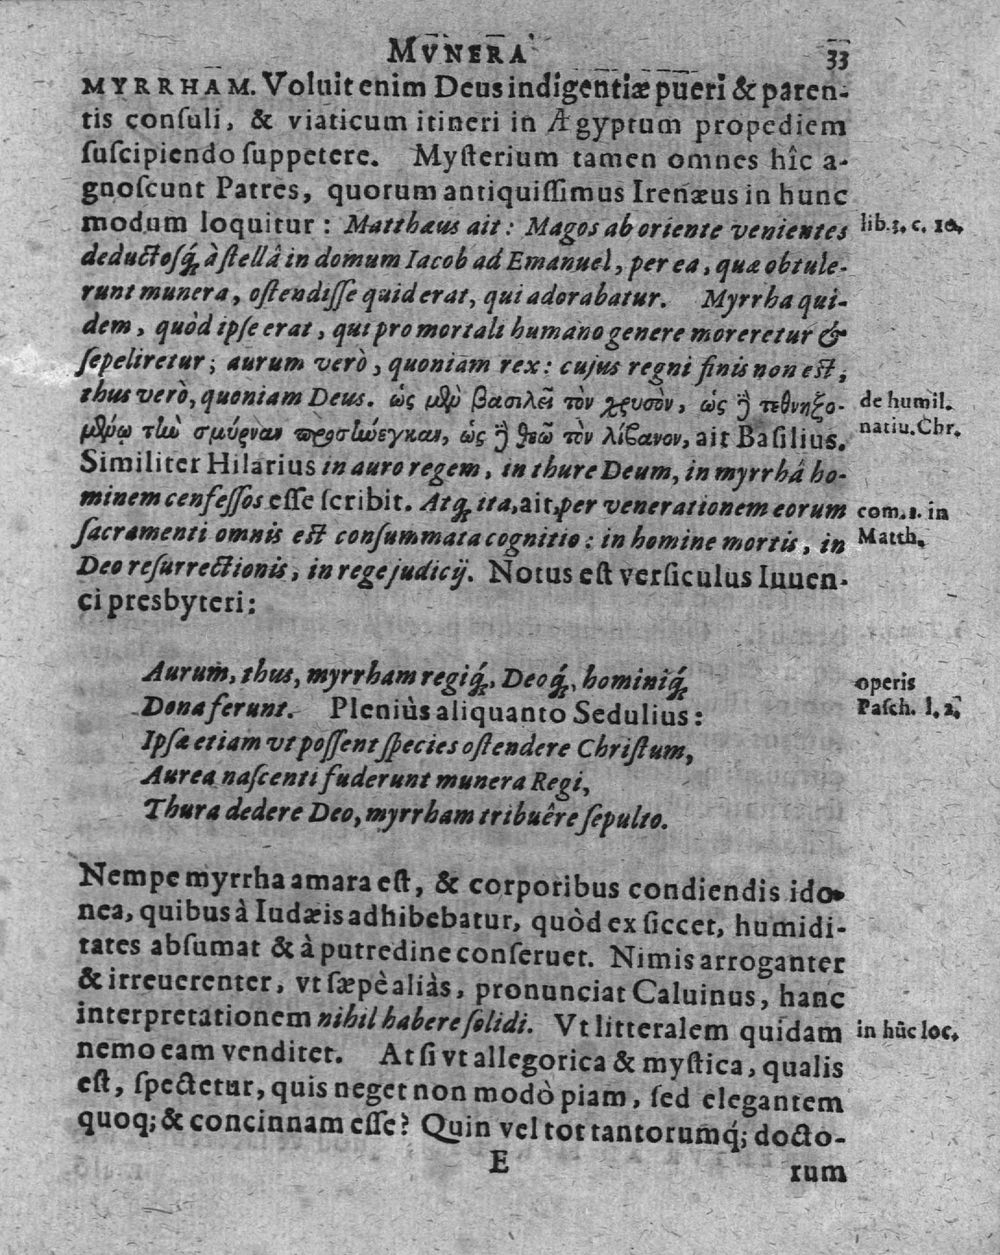 MVNERA 33
MYRRHAM. Voluit enim Deus indigentiæ pueri & paren-
tis conſuli, & viaticum itineri in Ægyptum propediem
ſuſcipiendo ſuppetere. Myſterium tamen omnes hîc a-
gnoſcunt Patres, quorum antiquiſſimus Irenæus in hunc
modum loquitur: Matthæus ait: Magos ab oriente venientes lib.3. c. 10.
deductoſq́; à ſtellâ in domum Iacob ad Emanuel, per ea, quæ obtule-
runt munera, oſtendiſſe quid erat, qui adorabatur. Myrrha qui-
dem, quòd ipſe erat, qui pro mortali humano genere moreretur &
ſepeliretur; aurum verò, quoniam rex: cujus regni finis non eſt,
thus verò, quoniam Deus. ὡς μὲν βασιλεῖ τὸν χρυσὸν, ὡς ἢ τεθνηξο- de humil.
μένῳ τὴν σμύρναν προσήνεγκαν, ὡς ἢ θεῷ τὸν λίβανον, ait Baſilius. natiu. Chr.
Similiter Hilarius in auro regem, in thure Deum, in myrrhâ ho-
minem confeſſos eſſe ſcribit. Atq́; ita, ait, per venerationem eorum com. 1. in
ſacramenti omnis eſt conſummata cognitio: in homine mortis, in Matth.
Deo reſurrectionis, in rege judicij. Notus eſt verſiculus Iuuen-
ci presbyteri:
Aurum, thus, myrrham regiq́;, Deoq́;, hominiq́; operis
Dona ferunt. Pleniùs aliquanto Sedulius: Paſch. l. 2.
Ipſæ etiam vt poſſent ſpecies oſtendere Chriſtum,
Aurea naſcenti fuderunt munera Regi,
Thura dedere Deo, myrrham tribuêre ſepulto.
Nempe myrrha amara eſt, & corporibus condiendis ido-
nea, quibus à Iudæis adhibebatur, quòd exſiccet, humidi-
tates abſumat & à putredine conſeruet. Nimis arroganter
& irreuerenter, vt ſæpè aliàs, pronunciat Caluinus, hanc
interpretationem nihil habere ſolidi. Vt litteralem quidam in hūc loc.
nemo eam venditet. At ſi vt allegorica & myſtica, qualis
eſt, ſpectetur, quis neget non modò piam, ſed elegantem
quoq; & concinnam eſſe? Quin vel tot tantorumq́; docto-
E rum